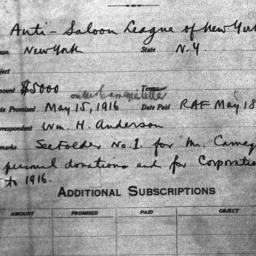 Anti-Saloon League of New York
New York State N.Y
$5000 on Mr Carnegie letter
Date Promised May 15, 1916 Date Paid RAF May 18
respondent Wm. H. Anderson
marks See Folder No. 1. for Mr. Carneg
personal donations and for Corporatio
to 1916.
ADDITIONAL SUBSCRIPTIONS
AMOUNT PROMISED PAID OBJECT